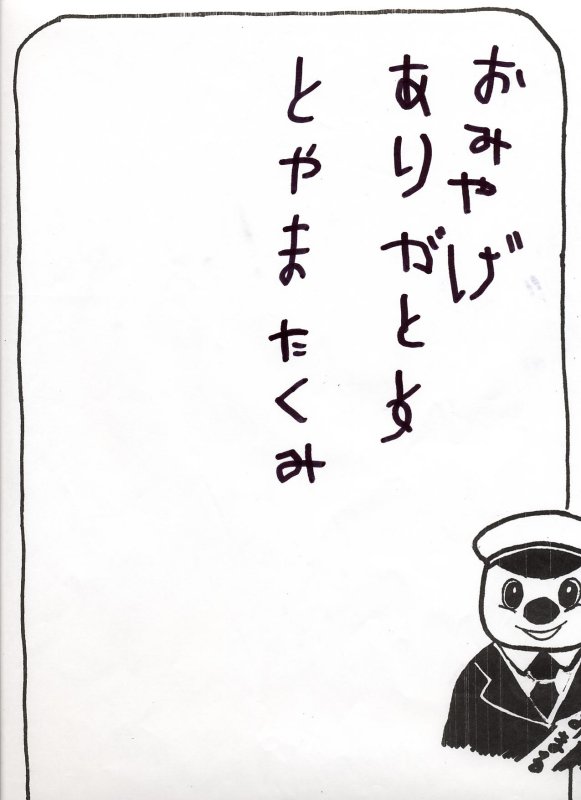 おみやげ
ありがとす
とやまたくみ